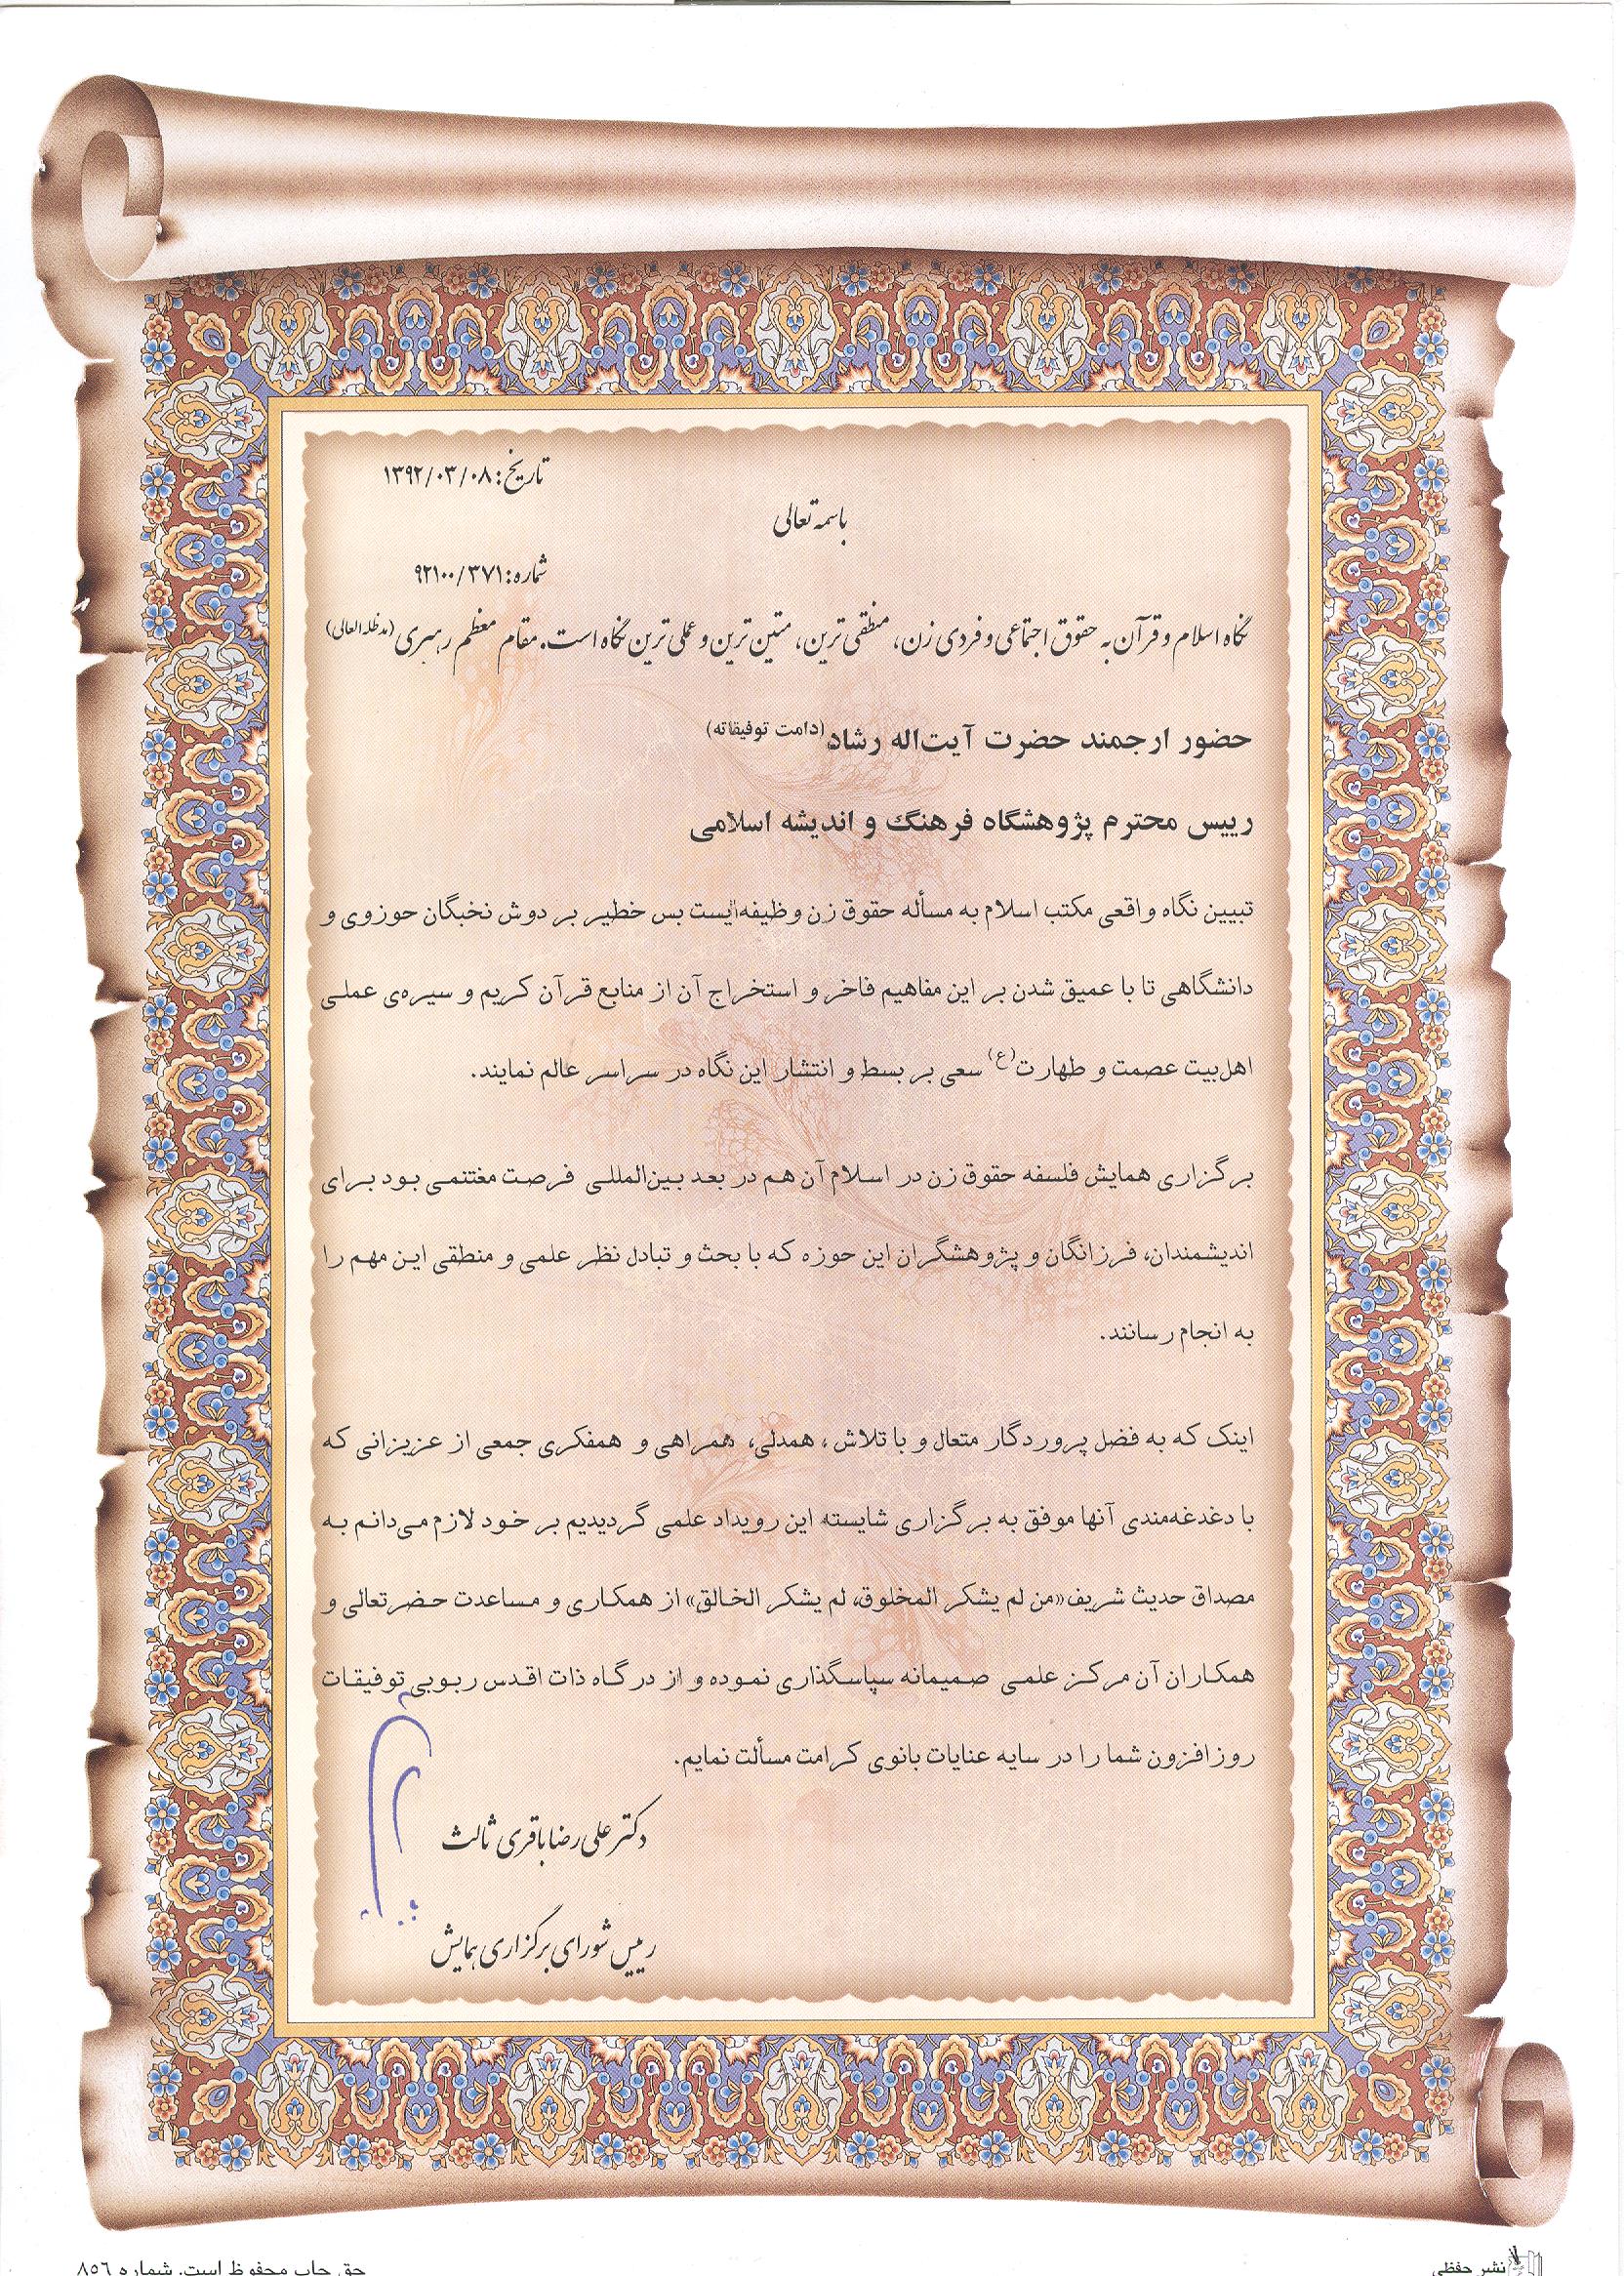 تاریخ: ۱۳۹۲/۰۳/۰۸
باسمه تعالی
شماره: ۹۲۱۰۰/۳۷۱
نگاه اسلام و قرآن به حقوق اجتماعی و فردی زن، منطقی ترین، متین ترین و عملی ترین نگاه است. مقام معظم رهبری (مدظله العالی)
حضور ارجمند حضرت آیت‌اله رشاد (دامت توفیقاته)
رییس محترم پژوهشگاه فرهنگ و اندیشه اسلامی
تبیین نگاه واقعی مکتب اسلام به مسأله حقوق زن وظیفه‌ایست بس خطیر بر دوش نخبگان حوزوی و
دانشگاهی تا با عمیق شدن بر این مفاهیم فاخر و استخراج آن از منابع قرآن کریم و سیره‌ی عملی
اهل‌بیت عصمت و طهارت (ع) سعی بر بسط و انتشار این نگاه در سراسر عالم نمایند.
برگزاری همایش فلسفه حقوق زن در اسلام آن هم در بعد بین‌المللی فرصت مغتنمی بود برای
اندیشمندان، فرزانگان و پژوهشگران این حوزه که با بحث و تبادل نظر علمی و منطقی این مهم را
به انجام رسانند.
اینک که به فضل پروردگار متعال و با تلاش، همدلی، همراهی و همفکری جمعی از عزیزانی که
با دغدغه‌مندی آنها موفق به برگزاری شایسته این رویداد علمی گردیدیم بر خود لازم می‌دانم به
مصداق حدیث شریف «من لم یشکر المخلوق، لم یشکر الخالق» از همکاری و مساعدت حضرتعالی و
همکاران آن مرکز علمی صمیمانه سپاسگذاری نموده و از درگاه ذات اقدس ربوبی توفیقات
روزافزون شما را در سایه عنایات بانوی کرامت مسألت نمایم.
دکتر علی رضا باقری ثالث
رییس شورای برگزاری همایش
حق چاپ محفوظ است. شماره ۸۵۶
نشر حفظی